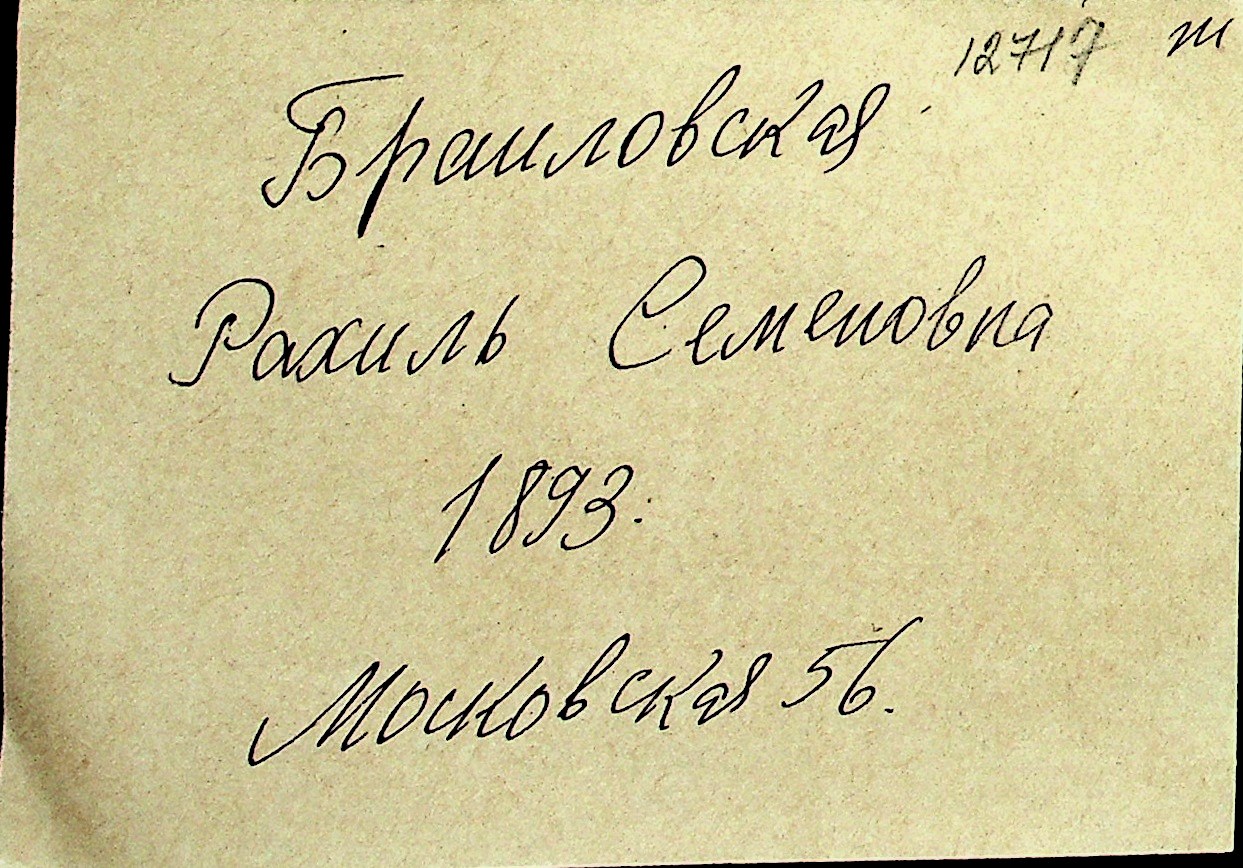 12717 т
Браиловская
Рахиль Семеновна
1893.
Московская 56.